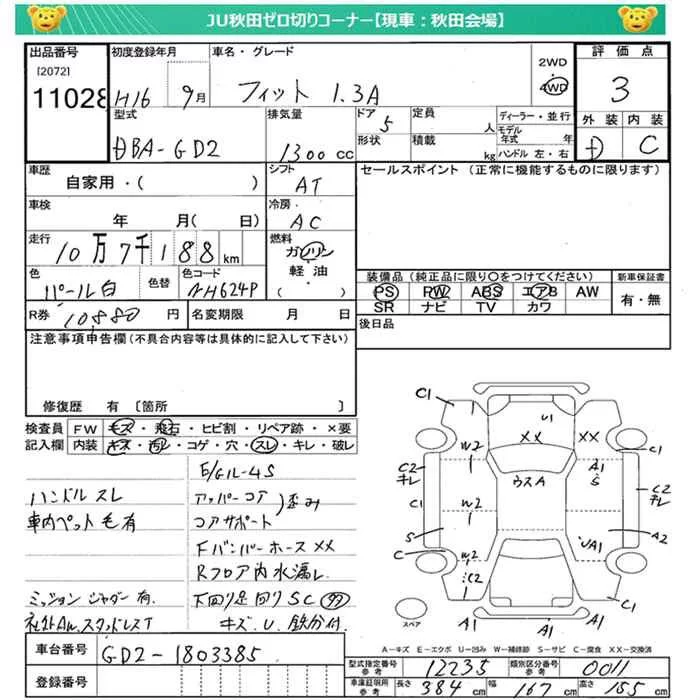 JU秋田ゼロ切りコーナー【現車：秋田会場】
出品番号 初度登録年月 車名・グレード 評価点
[2072] 2WD
11028 H16 9月 フィット 1.3A 4WD 3
型式 排気量 ドア 定員 ディーラー・並行 外装 内装
5 人 モデル年式 年
DBA-GD2 1300cc 形状 積載 kg ハンドル 左・右 D C
車歴 シフト セールスポイント（正常に機能するものに限ります）
自家用・( ) AT
車検 冷房
年 月(日) AC
走行 燃料
10万7千188km ガソリン
軽油
色 色替 色コード ( ) 装備品（純正品に限り○をつけてください） 新車保証書
パール白 NH624P PS PW ABS エアB AW 有・無
SR ナビ TV カワ
R券 10880円 名変期限 月 日 後日品
注意事項申告欄（不具合内容等は具体的に記入して下さい）
修復歴 有 〔箇所 〕
検査員 FW キズ・飛石・ヒビ割・リペア跡・×要
記入欄 内装 キズ・汚レ・コゲ・穴・スレ・キレ・破レ
E/Gイル-4S
ハンドル スレ アッパーコア 歪み
車内ペット毛有 コアサポート
Fバンパーホース XX
Rフロア内水漏レ
ミッション ジャダー有. 下回り足回りSC
社外AW.スタッドレスT キズ.U.鉄分付.
C1 C1
U1
W2 XX XX
C1
C2 キレ ウスA A1 S C2 キレ
C1 W2 C1
S UA1 A2
C W2
C2 C1
スペア A1 A1 A1
A－キズ E－エクボ U－凹み W－補修跡 S－サビ C－腐食 XX－交換済
車台番号 GD2-1803385
型式指定番号 参考 12235 類別区分番号 参考 0011
登録番号 車庫証明用 参考 長さ 384cm 幅 167cm 高さ 155cm